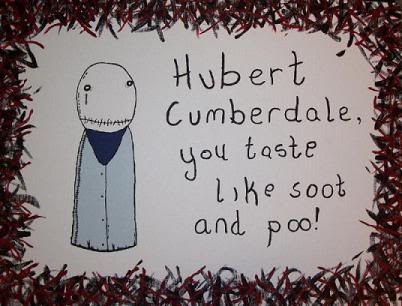 Hubert
Cumberdale,
you taste
like soot
and poo!